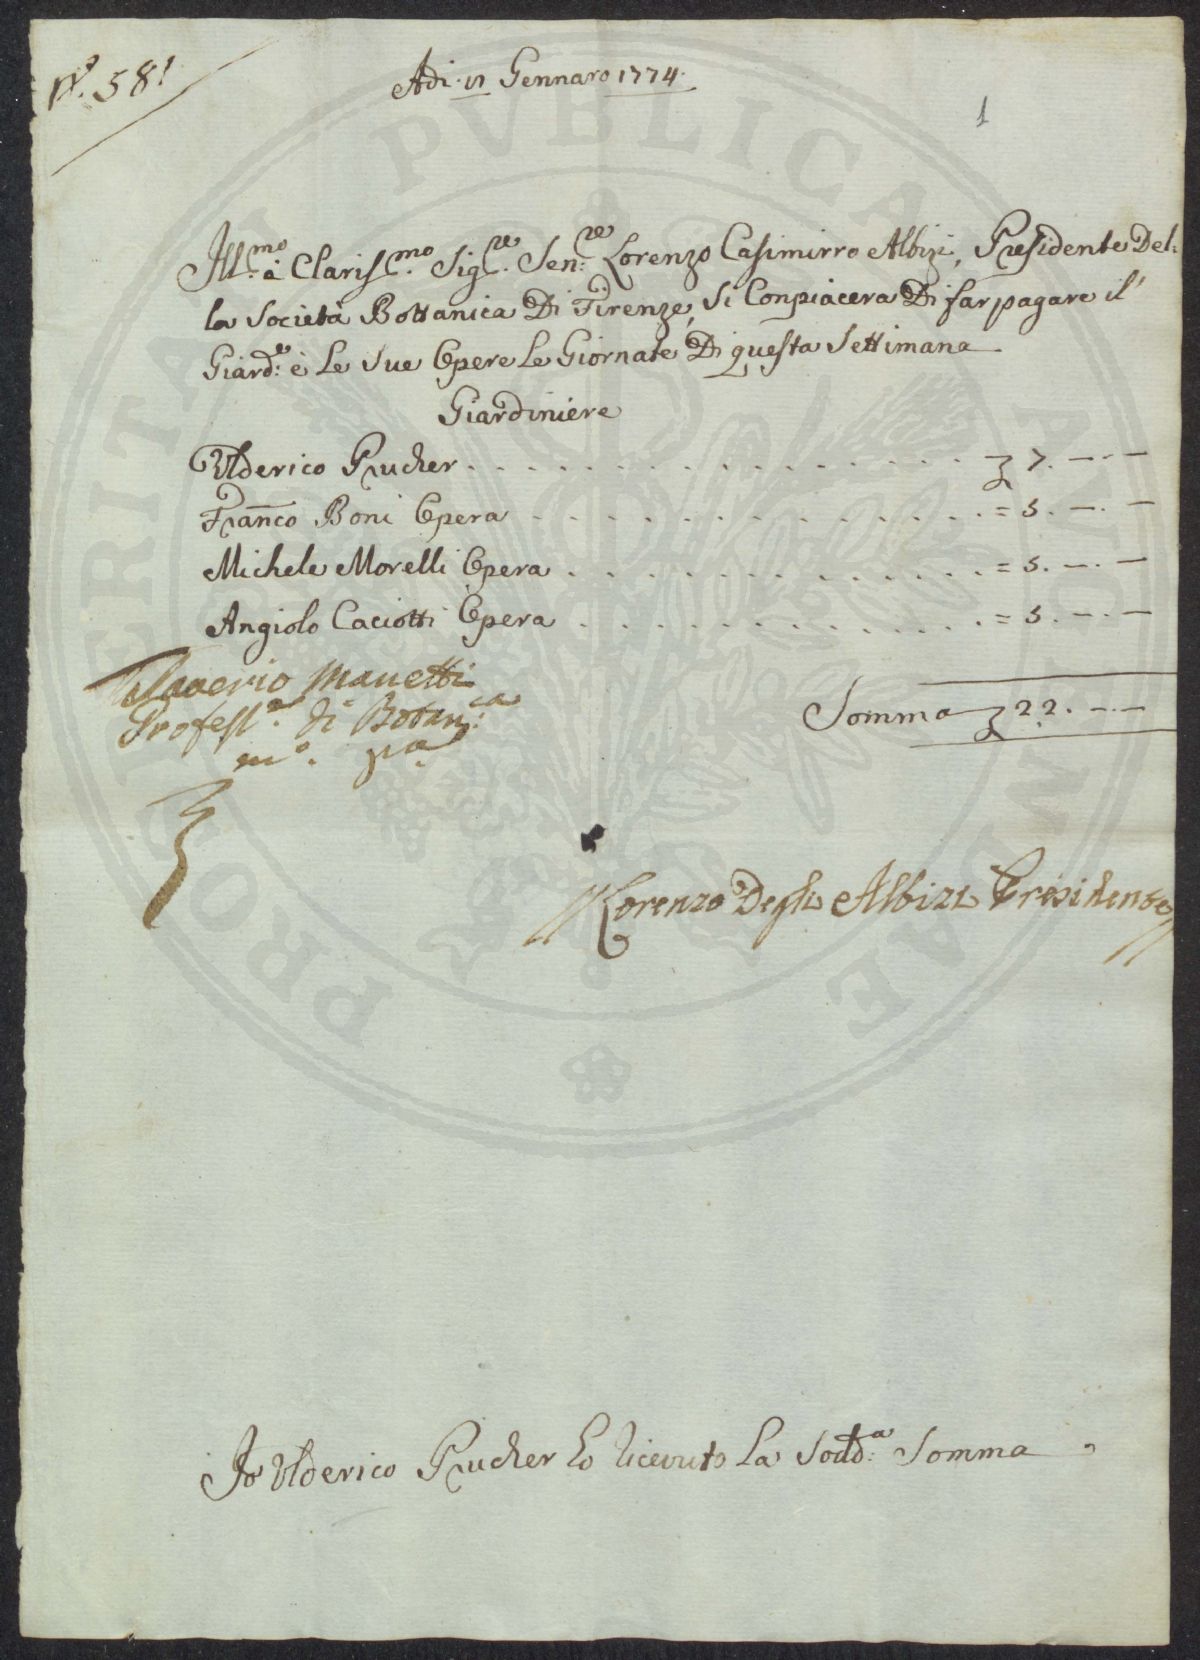 N.º 581
Adi 15 Gennaro 1774.
1
Ill.mo à Clariss.mo Sig.re Sen.re Lorenzo Casimirro Albizi, Presidente Del-
la Società Bottanica Di Firenze, Si Conpiacera Di far pagare il
Giard.e è Le Sue Opere Le Giornate Di questa Settimana
Giardiniere
Ulderico Prucher . . . . . . . . . . . . . . . . 7. —. —
Franco Boni Opera . . . . . . . . . . . . . . . = 5. —. —
Michele Morelli Opera . . . . . . . . . . . . . = 5. —. —
Angiolo Caciotti Opera . . . . . . . . . . . . . = 5. —. —
Saverio Manetti
Profess.e di Botan.ca
m.o p.a
Somma 22. —. —
Lorenzo Degli Albizi Presidente
Io Ulderico Prucher ho ricevuto La Sodd.a Somma
PROSPERITATI PVBLICAE AVGENDAE